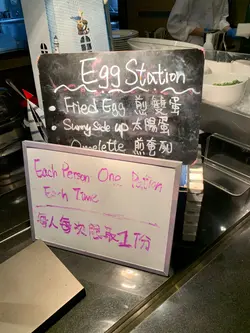 Egg Station
• Fried Egg 煎雙蛋
• Sunny Side up 太陽蛋
Omelette 煎奄列
Each Person One Portion
Each Time
每人每次限取1份